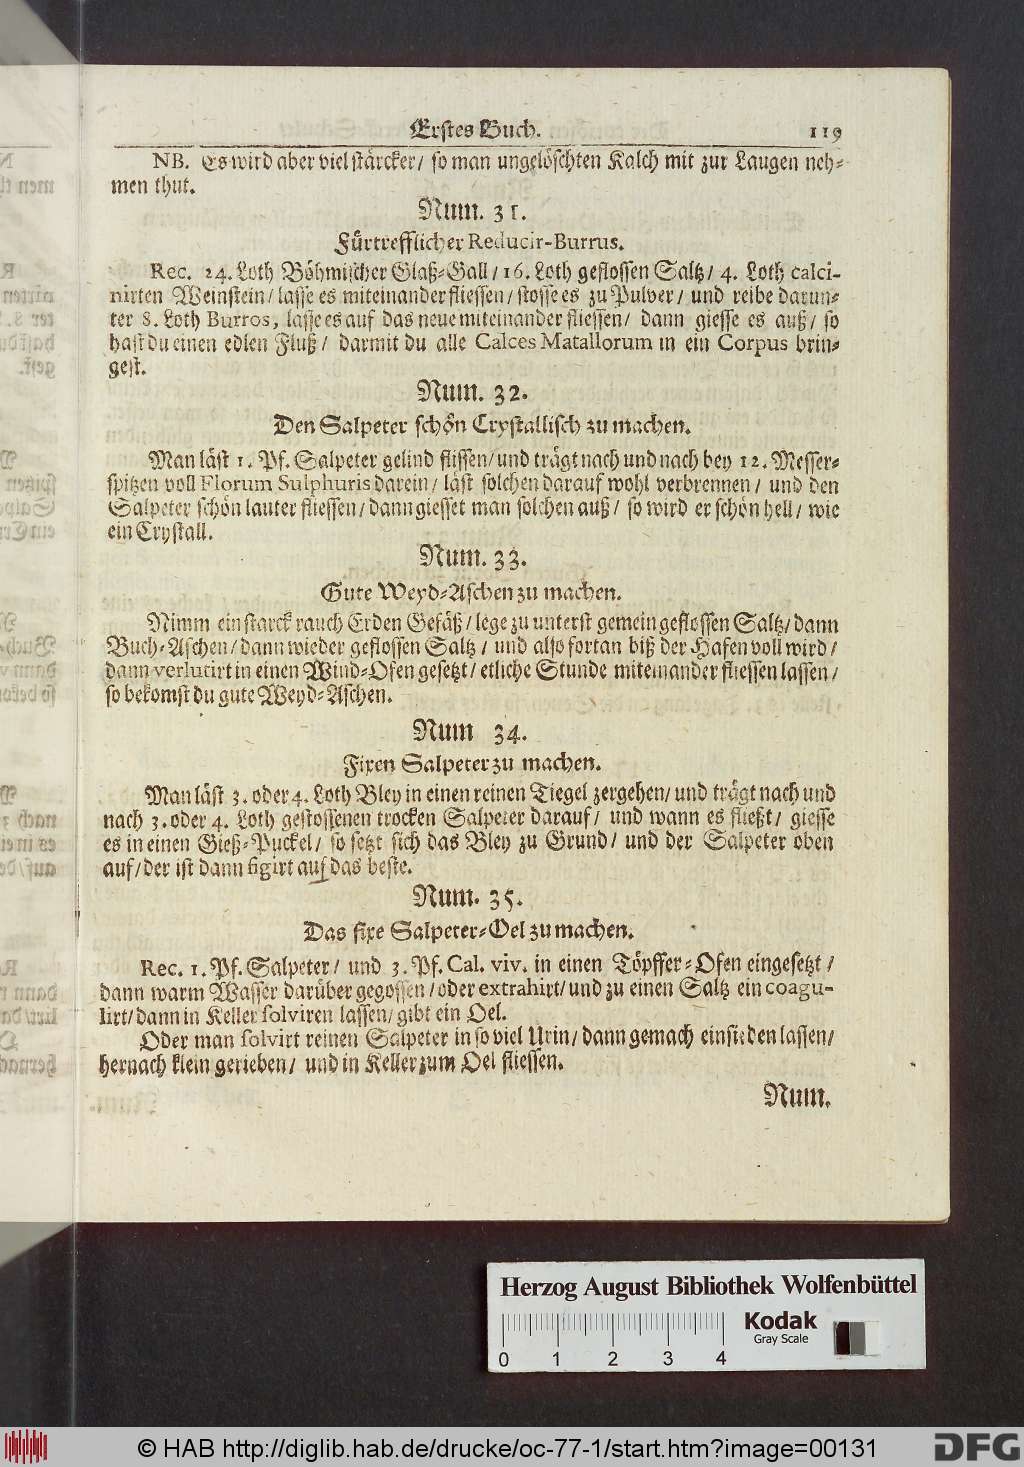 Erstes Buch. 119
NB. Es wird aber viel stärcker/ so man ungelöschten Kalch mit zur Laugen neh-
men thut.
Num. 31.
Fürtrefflicher Reducir-Burrus.
Rec. 24. Loth Böhmischer Glaß-Gall/ 16. Loth geflossen Saltz/ 4. Loth calci-
nirten Weinstein/ lasse es miteinander fliessen/ stosse es zu Pulver/ und reibe darun-
ter 8. Loth Burros, lasse es auf das neue miteinander fliessen/ dann giesse es auß/ so
hast du einen edlen Fluß/ darmit du alle Calces Matallorum in ein Corpus brin-
gest.
Num. 32.
Den Salpeter schön Crystallisch zu machen.
Man läst 1. Pf. Salpeter gelind flissen/ und trägt nach und nach bey 12. Messer-
spitzen voll Florum Sulphuris darein/ läst solchen darauf wohl verbrennen/ und den
Salpeter schön lauter fliessen/ dann giesset man solchen auß/ so wird er schön hell/ wie
ein Crystall.
Num. 33.
Gute Weyd-Aschen zu machen.
Nimm ein starck rauch Erden Gefäß/ lege zu unterst gemein geflossen Saltz/ dann
Buch-Aschen/ dann wieder geflossen Saltz/ und also fortan biß der Hafen voll wird/
dann verlutirt in einen Wind-Ofen gesetzt/ etliche Stunde miteinander fliessen lassen/
so bekomst du gute Weyd-Aschen.
Num 34.
Fixen Salpeter zu machen.
Man läst 3. oder 4. Loth Bley in einen reinen Tiegel zergehen/ und trägt nach und
nach 3. oder 4. Loth gestossenen trocken Salpeter darauf/ und wann es fließt/ giesse
es in einen Gieß-Puckel/ so setzt sich das Bley zu Grund/ und der Salpeter oben
auf/ der ist dann figirt auf das beste.
Num. 35.
Das fixe Salpeter-Oel zu machen.
Rec. 1. Pf. Salpeter/ und 3. Pf. Cal. viv. in einen Töpffer-Ofen eingesetzt/
dann warm Wasser darüber gegossen/ oder extrahirt/ und zu einen Saltz ein coagu-
lirt/ dann in Keller solviren lassen/ gibt ein Oel.
Oder man solvirt reinen Salpeter in so viel Urin/ dann gemach einsieden lassen/
hernach klein gerieben/ und in Keller zum Oel fliessen.
Num.
Herzog August Bibliothek Wolfenbüttel
Kodak
Gray Scale
0 1 2 3 4
© HAB http://diglib.hab.de/drucke/oc-77-1/start.htm?image=00131
DFG